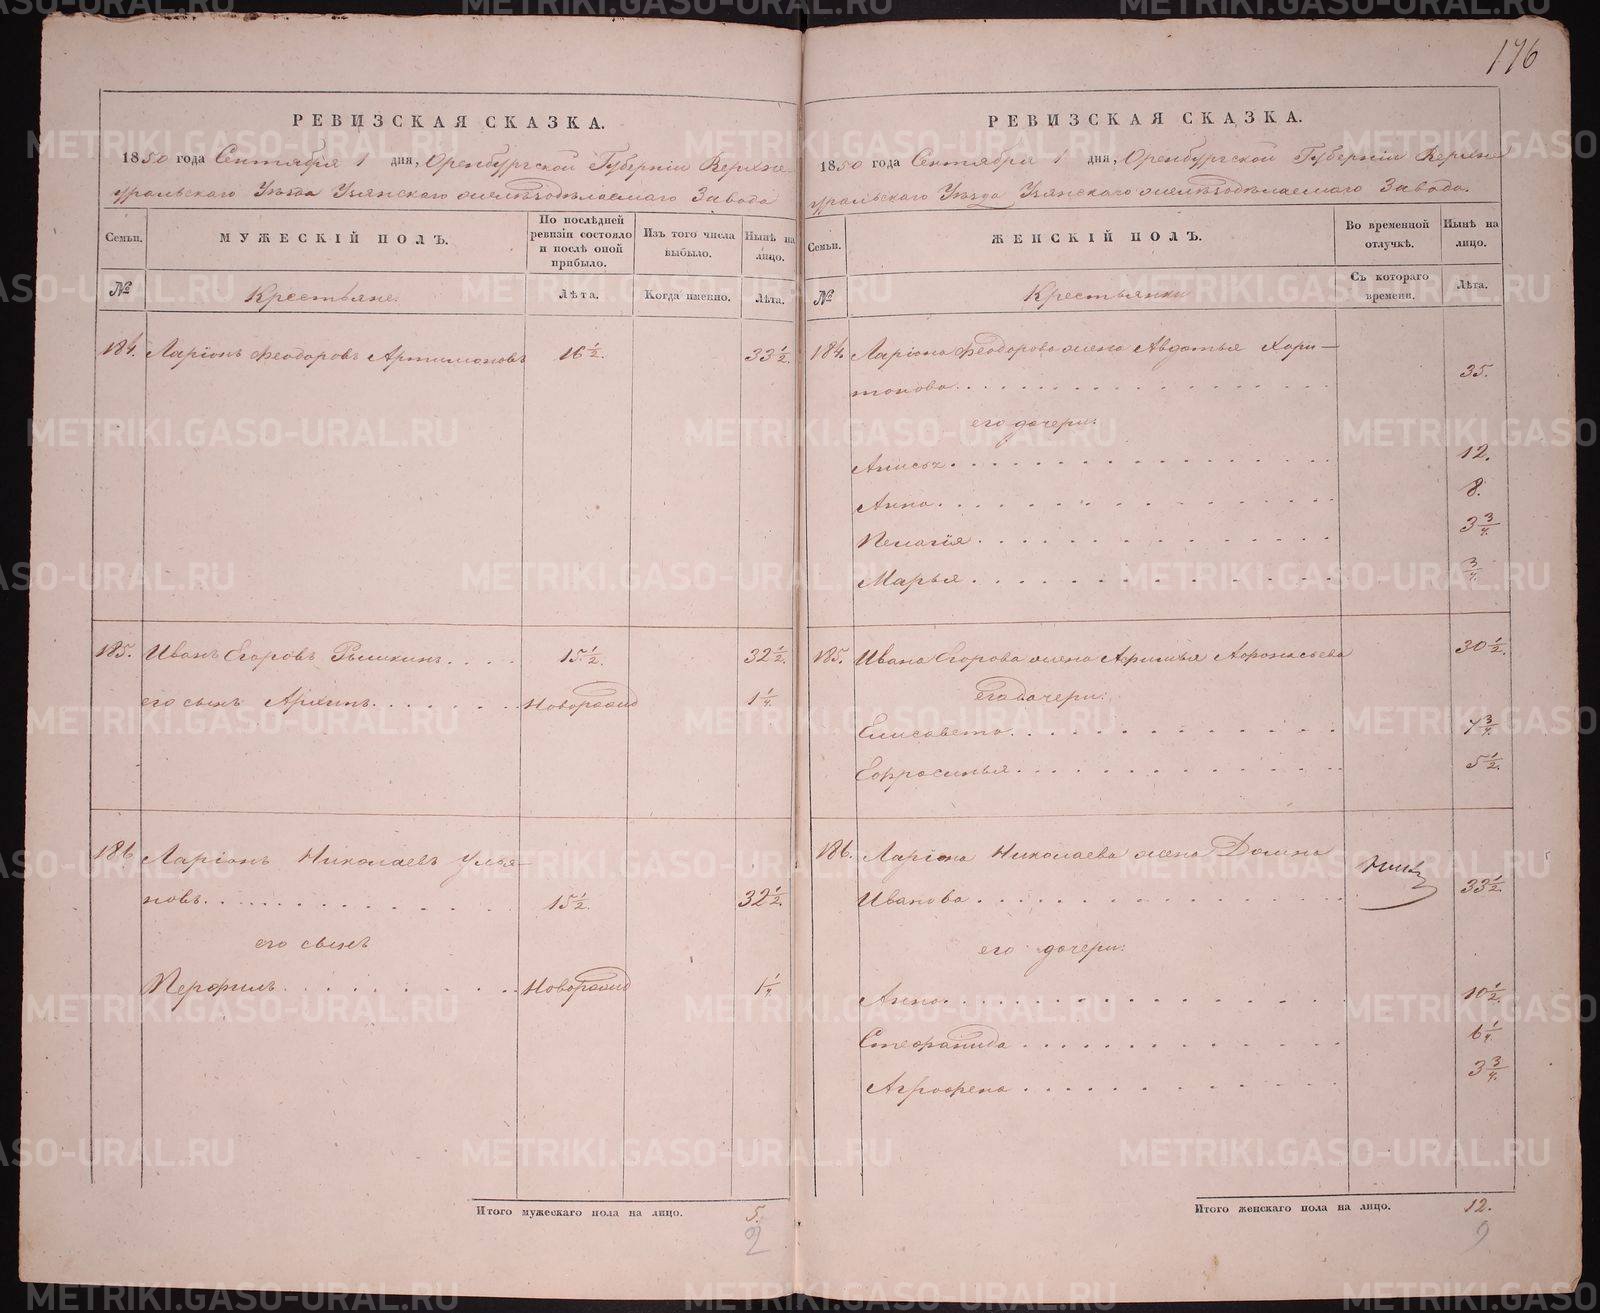 176
РЕВИЗСКАЯ СКАЗКА.
1850 года Сентября 1 дня, Оренбургской Губерніи Верхне-
уральскаго Уѣзда Узянскаго желѣзодѣлаемаго Завода
Семьи.
МУЖЕСКІЙ ПОЛЪ.
По послѣдней ревизіи состояло и послѣ оной прибыло.
Изъ того числа выбыло.
Нынѣ на лицо.
№
Крестьяне.
Лѣта.
Когда именно.
Лѣта.
184. Ларіонъ Феодоровъ Артимоновъ 16 1/2. 33 1/2.
185. Иванъ Егоровъ 15 1/2. 32 1/2.
его сынъ Архипъ. Новорожд 1 1/4.
186 Ларіонъ Николаевъ Улья-
новъ. 15 1/2. 32 1/2.
его сынъ
Перфилъ. Новорожд 1 1/4
Итого мужескаго пола на лицо. 5.
2
РЕВИЗСКАЯ СКАЗКА.
1850 года Сентября 1 дня, Оренбургской Губерніи Верхне
уральскаго Уѣзда Узянскаго желѣзодѣлаемаго Завода.
Семьи.
ЖЕНСКІЙ ПОЛЪ.
Во временной отлучкѣ.
Нынѣ на лицо.
№
Крестьянки
Съ котораго времени.
Лѣта.
184. Ларіона Феодорова жена Авдотья Хари-
тонова. 35.
его дочери:
Анисья. 12.
Анна. 8.
Пелагія. 3 3/4.
Марья. 3/4.
185. Ивана Егорова жена Афимья Афонасьева 30 1/2.
его дочери:
Елисавета. 7 3/4.
Ефросинья. 5 1/2.
186. Ларіона Николаева жена Домна
Иванова. 33 1/2.
его дочери:
Анна. 10 1/2.
Стефанида 6 1/4.
Аграфена 3 3/4.
Итого женскаго пола на лицо. 12.
9
METRIKI.GASO-URAL.RU